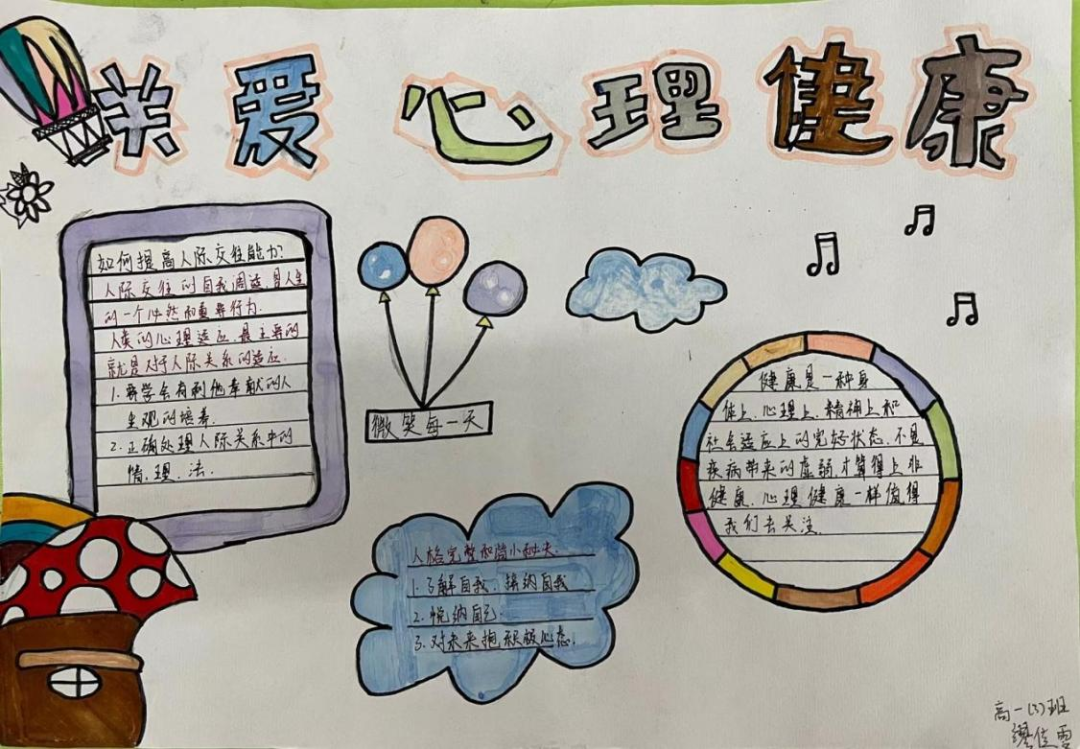 关爱心理健康
如何提高人际交往能力?
人际交往的自我调适,是人生
的一个必然和重要行为.
人类的心理适应,最主要的
就是对于人际关系的适应.
1.要学会有利他奉献的人
生观的培养.
2.正确处理人际关系中的
情、理、法.
微笑每一天
健康是一种身
体上、心理上、精神上和
社会适应上的完好状态,不是
疾病带来的虚弱才算得上非
健康,心理健康一样值得
我们去关注
人格完整和谐小秘夫.
1.了解自我,接纳自我
2.悦纳自己.
3.对未来抱积极心态.
高一(3)班